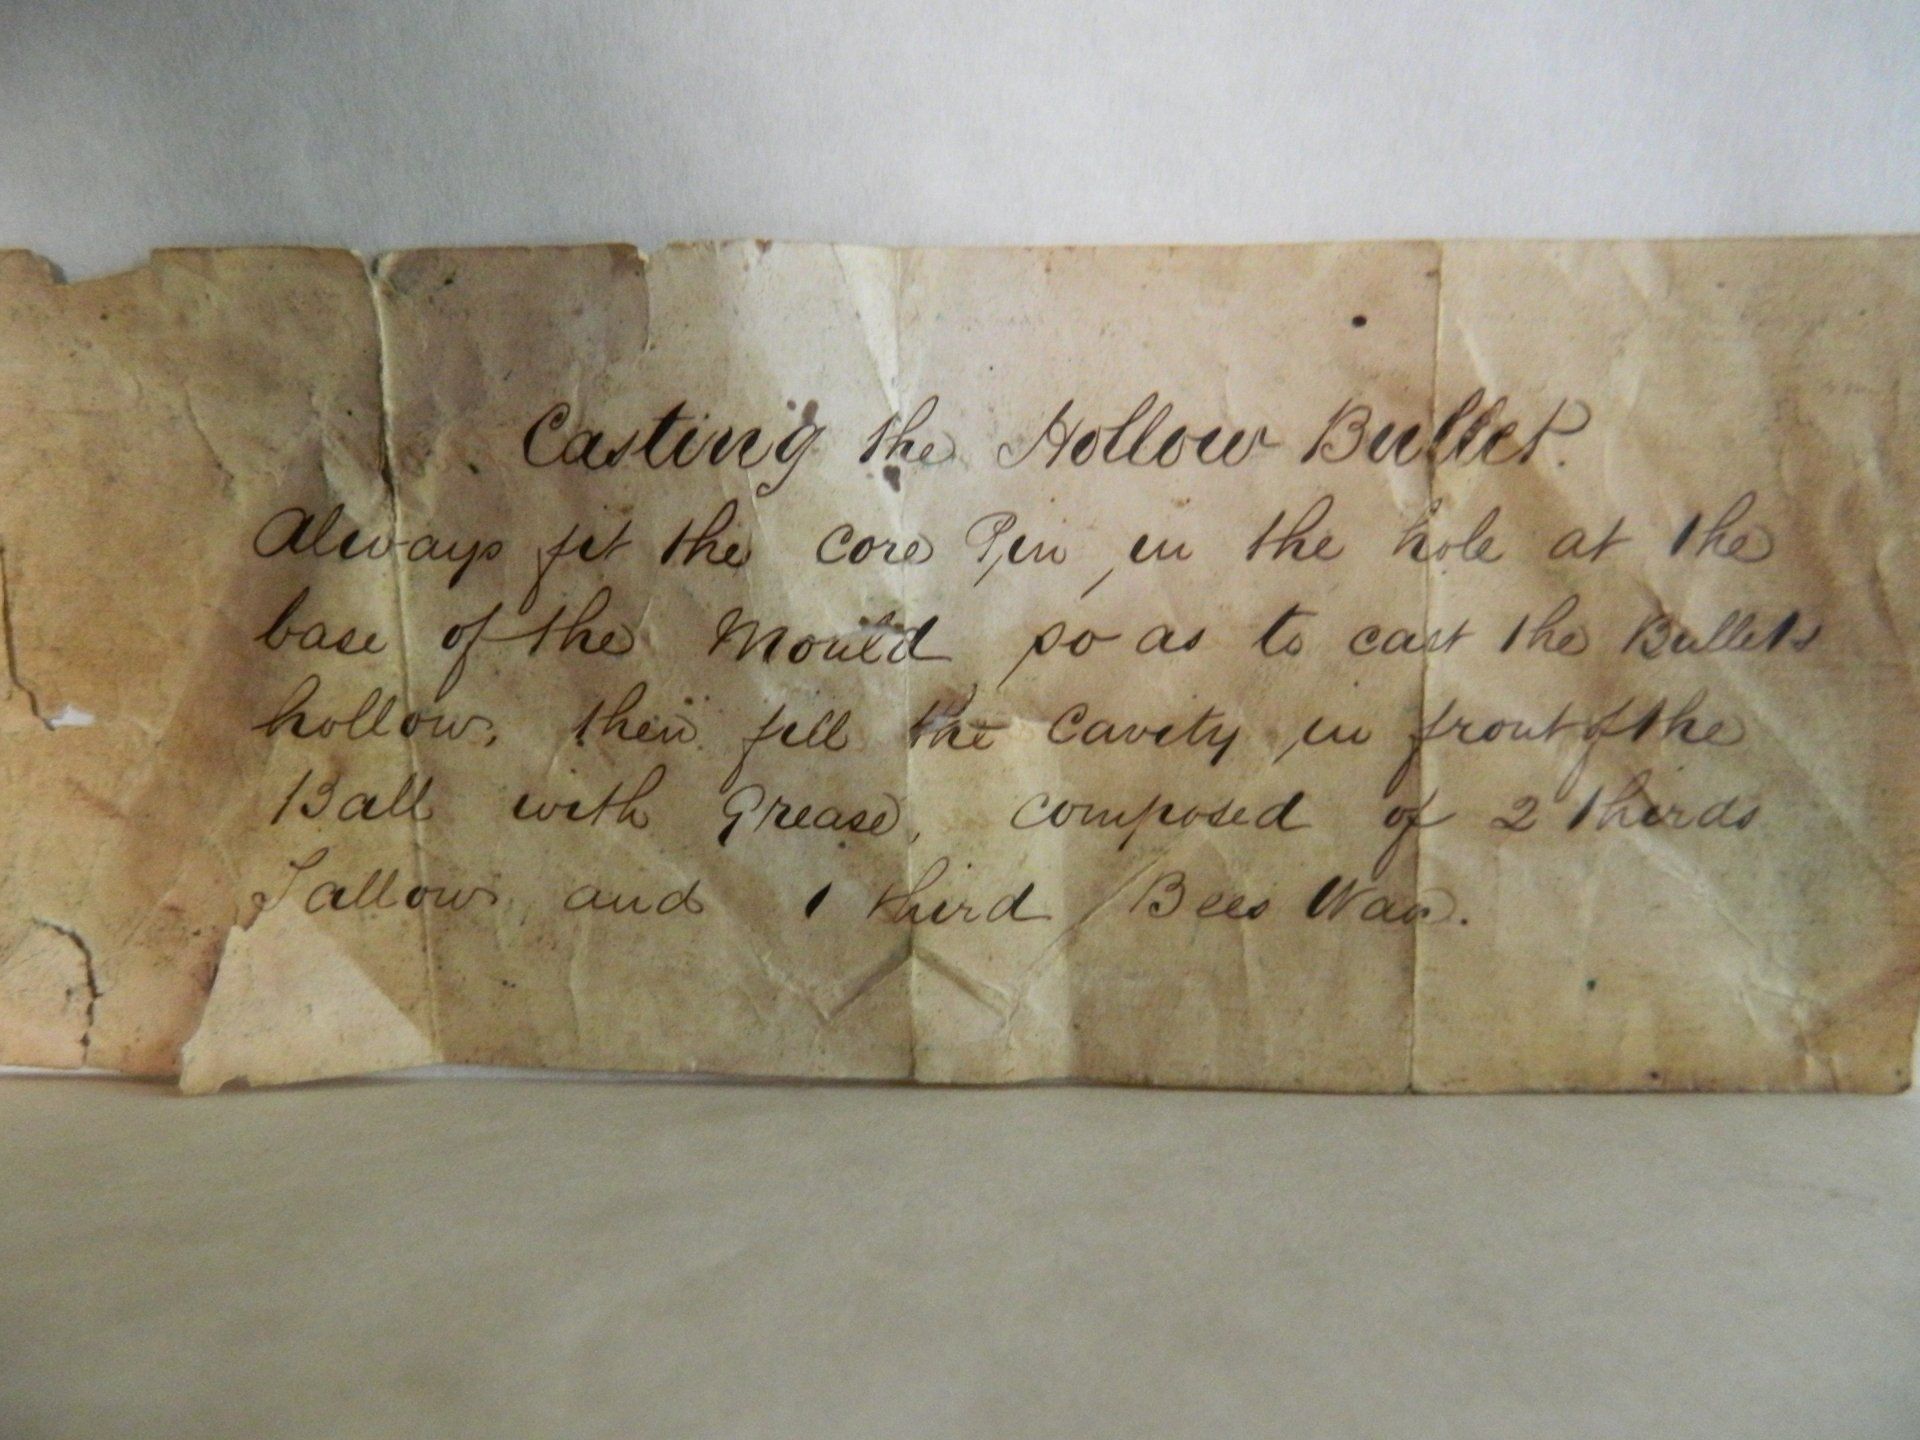 Casting the Hollow Bullet.
Always fit the core Pin in the hole at the
base of the Mould so as to cast the Bullets
hollow, then fill the Cavity in front of the
Ball with Grease, composed of 2 thirds
Tallow, and 1 third Bees Wax.